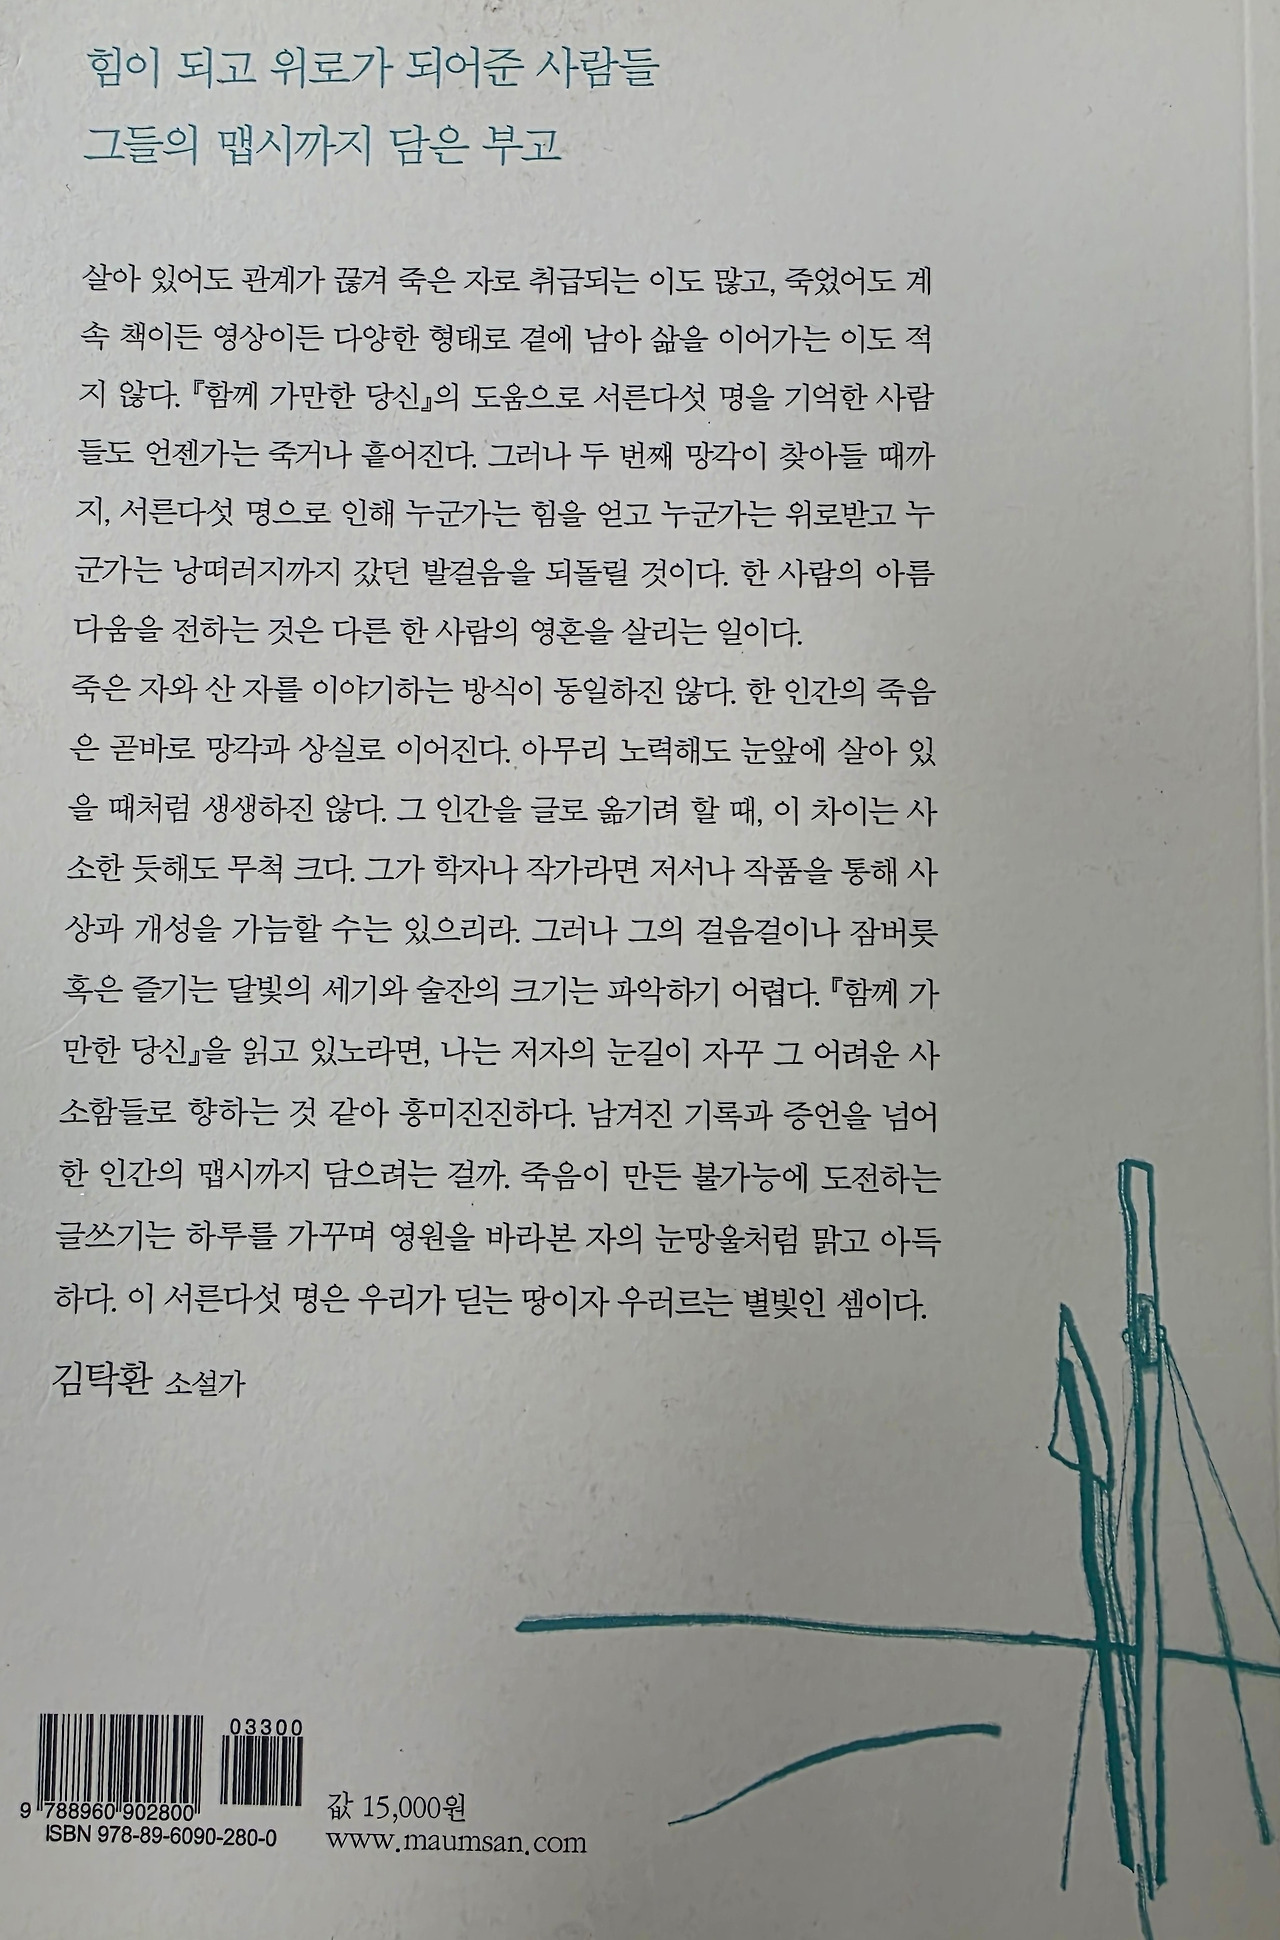 힘이 되고 위로가 되어준 사람들
그들의 맵시까지 담은 부고
살아 있어도 관계가 끊겨 죽은 자로 취급되는 이도 많고, 죽었어도 계
속 책이든 영상이든 다양한 형태로 곁에 남아 삶을 이어가는 이도 적
지 않다. 『함께 가만한 당신』의 도움으로 서른다섯 명을 기억한 사람
들도 언젠가는 죽거나 흩어진다. 그러나 두 번째 망각이 찾아들 때까
지, 서른다섯 명으로 인해 누군가는 힘을 얻고 누군가는 위로받고 누
군가는 낭떠러지까지 갔던 발걸음을 되돌릴 것이다. 한 사람의 아름
다움을 전하는 것은 다른 한 사람의 영혼을 살리는 일이다.
죽은 자와 산 자를 이야기하는 방식이 동일하진 않다. 한 인간의 죽음
은 곧바로 망각과 상실로 이어진다. 아무리 노력해도 눈앞에 살아 있
을 때처럼 생생하진 않다. 그 인간을 글로 옮기려 할 때, 이 차이는 사
소한 듯해도 무척 크다. 그가 학자나 작가라면 저서나 작품을 통해 사
상과 개성을 가늠할 수는 있으리라. 그러나 그의 걸음걸이나 잠버릇
혹은 즐기는 달빛의 세기와 술잔의 크기는 파악하기 어렵다. 『함께 가
만한 당신』을 읽고 있노라면, 나는 저자의 눈길이 자꾸 그 어려운 사
소함들로 향하는 것 같아 흥미진진하다. 남겨진 기록과 증언을 넘어
한 인간의 맵시까지 담으려는 걸까. 죽음이 만든 불가능에 도전하는
글쓰기는 하루를 가꾸며 영원을 바라본 자의 눈망울처럼 맑고 아득
하다. 이 서른다섯 명은 우리가 딛는 땅이자 우러르는 별빛인 셈이다.
김탁환 소설가
03300
9 788960 902800
ISBN 978-89-6090-280-0
값 15,000원
www.maumsan.com